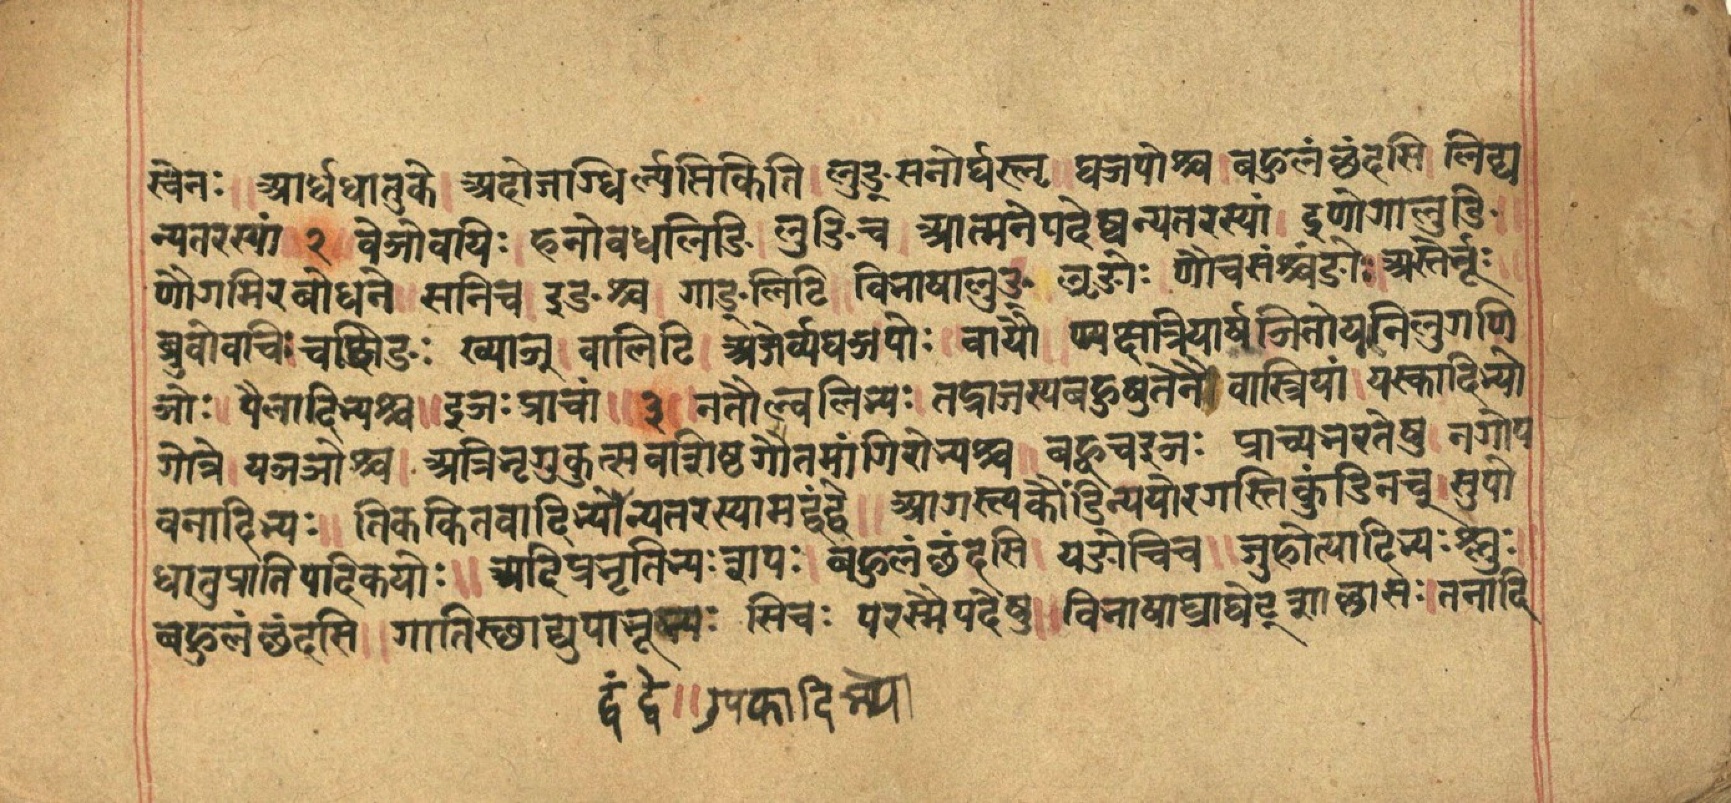 स्वेनः ॥ आर्धधातुके । अदोजग्धिर्ल्यप्तिकिति । लुङ्सनोर्घस्लृ ॥ घञपोश्च । बहुलंछंदसि । लिट्य
न्यतरस्यां २ वेञोवयिः हनोवधलिङि । लुङिच । आत्मनेपदेष्वन्यतरस्यां । इणोगालुङि ॥
णौगमिरबोधने ॥ सनिच । इङश्च । गाङ्लिटि । विभाषालुङ् लृङोः । णौचसंश्चंङोः । अस्तेर्भूः ॥
ब्रुवोवचिः चक्षिङः ख्याञ् । वालिटि । अजेर्व्यघञपोः । वायौ । ण्यक्षत्रियार्षञितोयूनिलुगणि
ञोः ॥ पैलादिभ्यश्च ॥ इञःप्राचां ॥ ३ ॥ नतौल्वलिभ्यः । तद्राजस्यबहुषुतेनै वास्त्रियां । यस्कादिभ्यो
गोत्रे । यञञोश्च । अत्रिभृगुकुत्सवशिष्ठगौतमांगिरोभ्यश्च ॥ बह्वचइञः प्राच्यभरतेषु । नगोप
वनादिभ्यः ॥ तिककितवादिभ्योन्यतरस्यामद्वंद्वे ॥ आगस्त्यकौंडिन्ययोरगस्तिकुंडिनच् । सुपो
धातुप्रातिपदिकयोः ॥ अदिप्रभृतिभ्यःशपः । बहुलंछंदसि । यङोचिच ॥ जुहोत्यादिभ्यःश्लुः ॥
बहुलंछंदसि ॥ गातिस्छाघुपाभूभ्यः सिचः परस्मैपदेषु ॥ विभाषाघ्राधेट्शाछासः । तनादि
द्वंद्वे ॥ उपकादिभ्यो